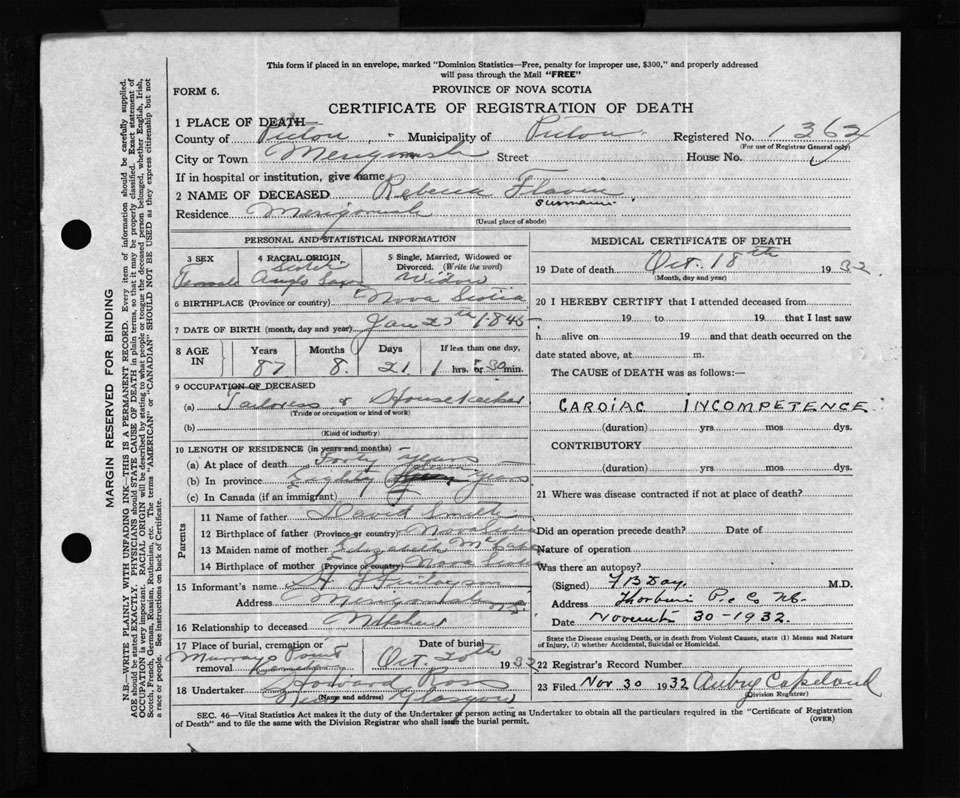 This form if placed in an envelope, marked "Dominion Statistics—Free, penalty for improper use, $300," and properly addressed
will pass through the Mail "FREE"
FORM 6.
PROVINCE OF NOVA SCOTIA
CERTIFICATE OF REGISTRATION OF DEATH
1 PLACE OF DEATH
County of Pictou Municipality of Pictou Registered No. 1362
(For use of Registrar General only)
City or Town Merigomish Street House No.
If in hospital or institution, give name
2 NAME OF DECEASED Rebecca Flavin
surname
Residence Merigomish
(Usual place of abode)
PERSONAL AND STATISTICAL INFORMATION
3 SEX 4 RACIAL ORIGIN 5 Single, Married, Widowed or Divorced. (Write the word)
Female Scotch Anglo Saxon Widow
6 BIRTHPLACE (Province or country) Nova Scotia
7 DATE OF BIRTH (month, day and year) Jan 27th 1845
8 AGE IN Years Months Days If less than one day,
87 8 21 1 hrs. or 30 min.
9 OCCUPATION OF DECEASED
(a) Tailoress & Housekeeper
(Trade or occupation or kind of work)
(b)
(Kind of industry)
10 LENGTH OF RESIDENCE (in years and months)
(a) At place of death Forty years
(b) In province Eighty seven Years
(c) In Canada (if an immigrant)
Parents
11 Name of father David Smith
12 Birthplace of father (Province or country) Nova Scotia
13 Maiden name of mother Elizabeth
14 Birthplace of mother (Province or country) Nova Scotia
15 Informant's name H J Finlayson
Address Merigomish N.S.
16 Relationship to deceased Nephew
17 Place of burial, cremation or removal Date of burial
Murrays Point Oct 20th 1932
18 Undertaker Howard Ross
(Name and address) New Glasgow
MEDICAL CERTIFICATE OF DEATH
19 Date of death Oct. 18th 1932
(Month, day and year)
20 I HEREBY CERTIFY that I attended deceased from
19 to 19 that I last saw
h alive on 19 and that death occurred on the
date stated above, at m.
The CAUSE of DEATH was as follows:—
CARDIAC INCOMPETENCE
(duration) yrs mos dys.
CONTRIBUTORY
(duration) yrs mos dys.
21 Where was disease contracted if not at place of death?
Did an operation precede death? Date of
Nature of operation
Was there an autopsy?
(Signed) F B Day M.D.
Address Thorburn P. Co NS.
Date November 30-1932.
State the Disease causing Death, or in death from Violent Causes, state (1) Means and Nature
of Injury, (2) whether Accidental, Suicidal or Homicidal.
22 Registrar's Record Number
23 Filed Nov 30 1932 Aubry Copeland
(Division Registrar)
SEC. 46—Vital Statistics Act makes it the duty of the Undertaker or person acting as Undertaker to obtain all the particulars required in the "Certificate of Registration
of Death" and to file the same with the Division Registrar who shall issue the burial permit.
(OVER)
MARGIN RESERVED FOR BINDING
N.B.—WRITE PLAINLY WITH UNFADING INK—THIS IS A PERMANENT RECORD. Every item of information should be carefully supplied.
AGE should be stated EXACTLY. PHYSICIANS should STATE CAUSE OF DEATH in plain terms, so that it may be properly classified. Exact statement of
OCCUPATION is very important. RACIAL ORIGIN will be described by stating to what people or tongue the deceased person belonged, whether English, Irish,
Scotch, French, German, Russian, Ruthenian, etc. The terms "AMERICAN" or "CANADIAN" SHOULD NOT BE USED as they express citizenship but not
a race or people. See instructions on back of Certificate.